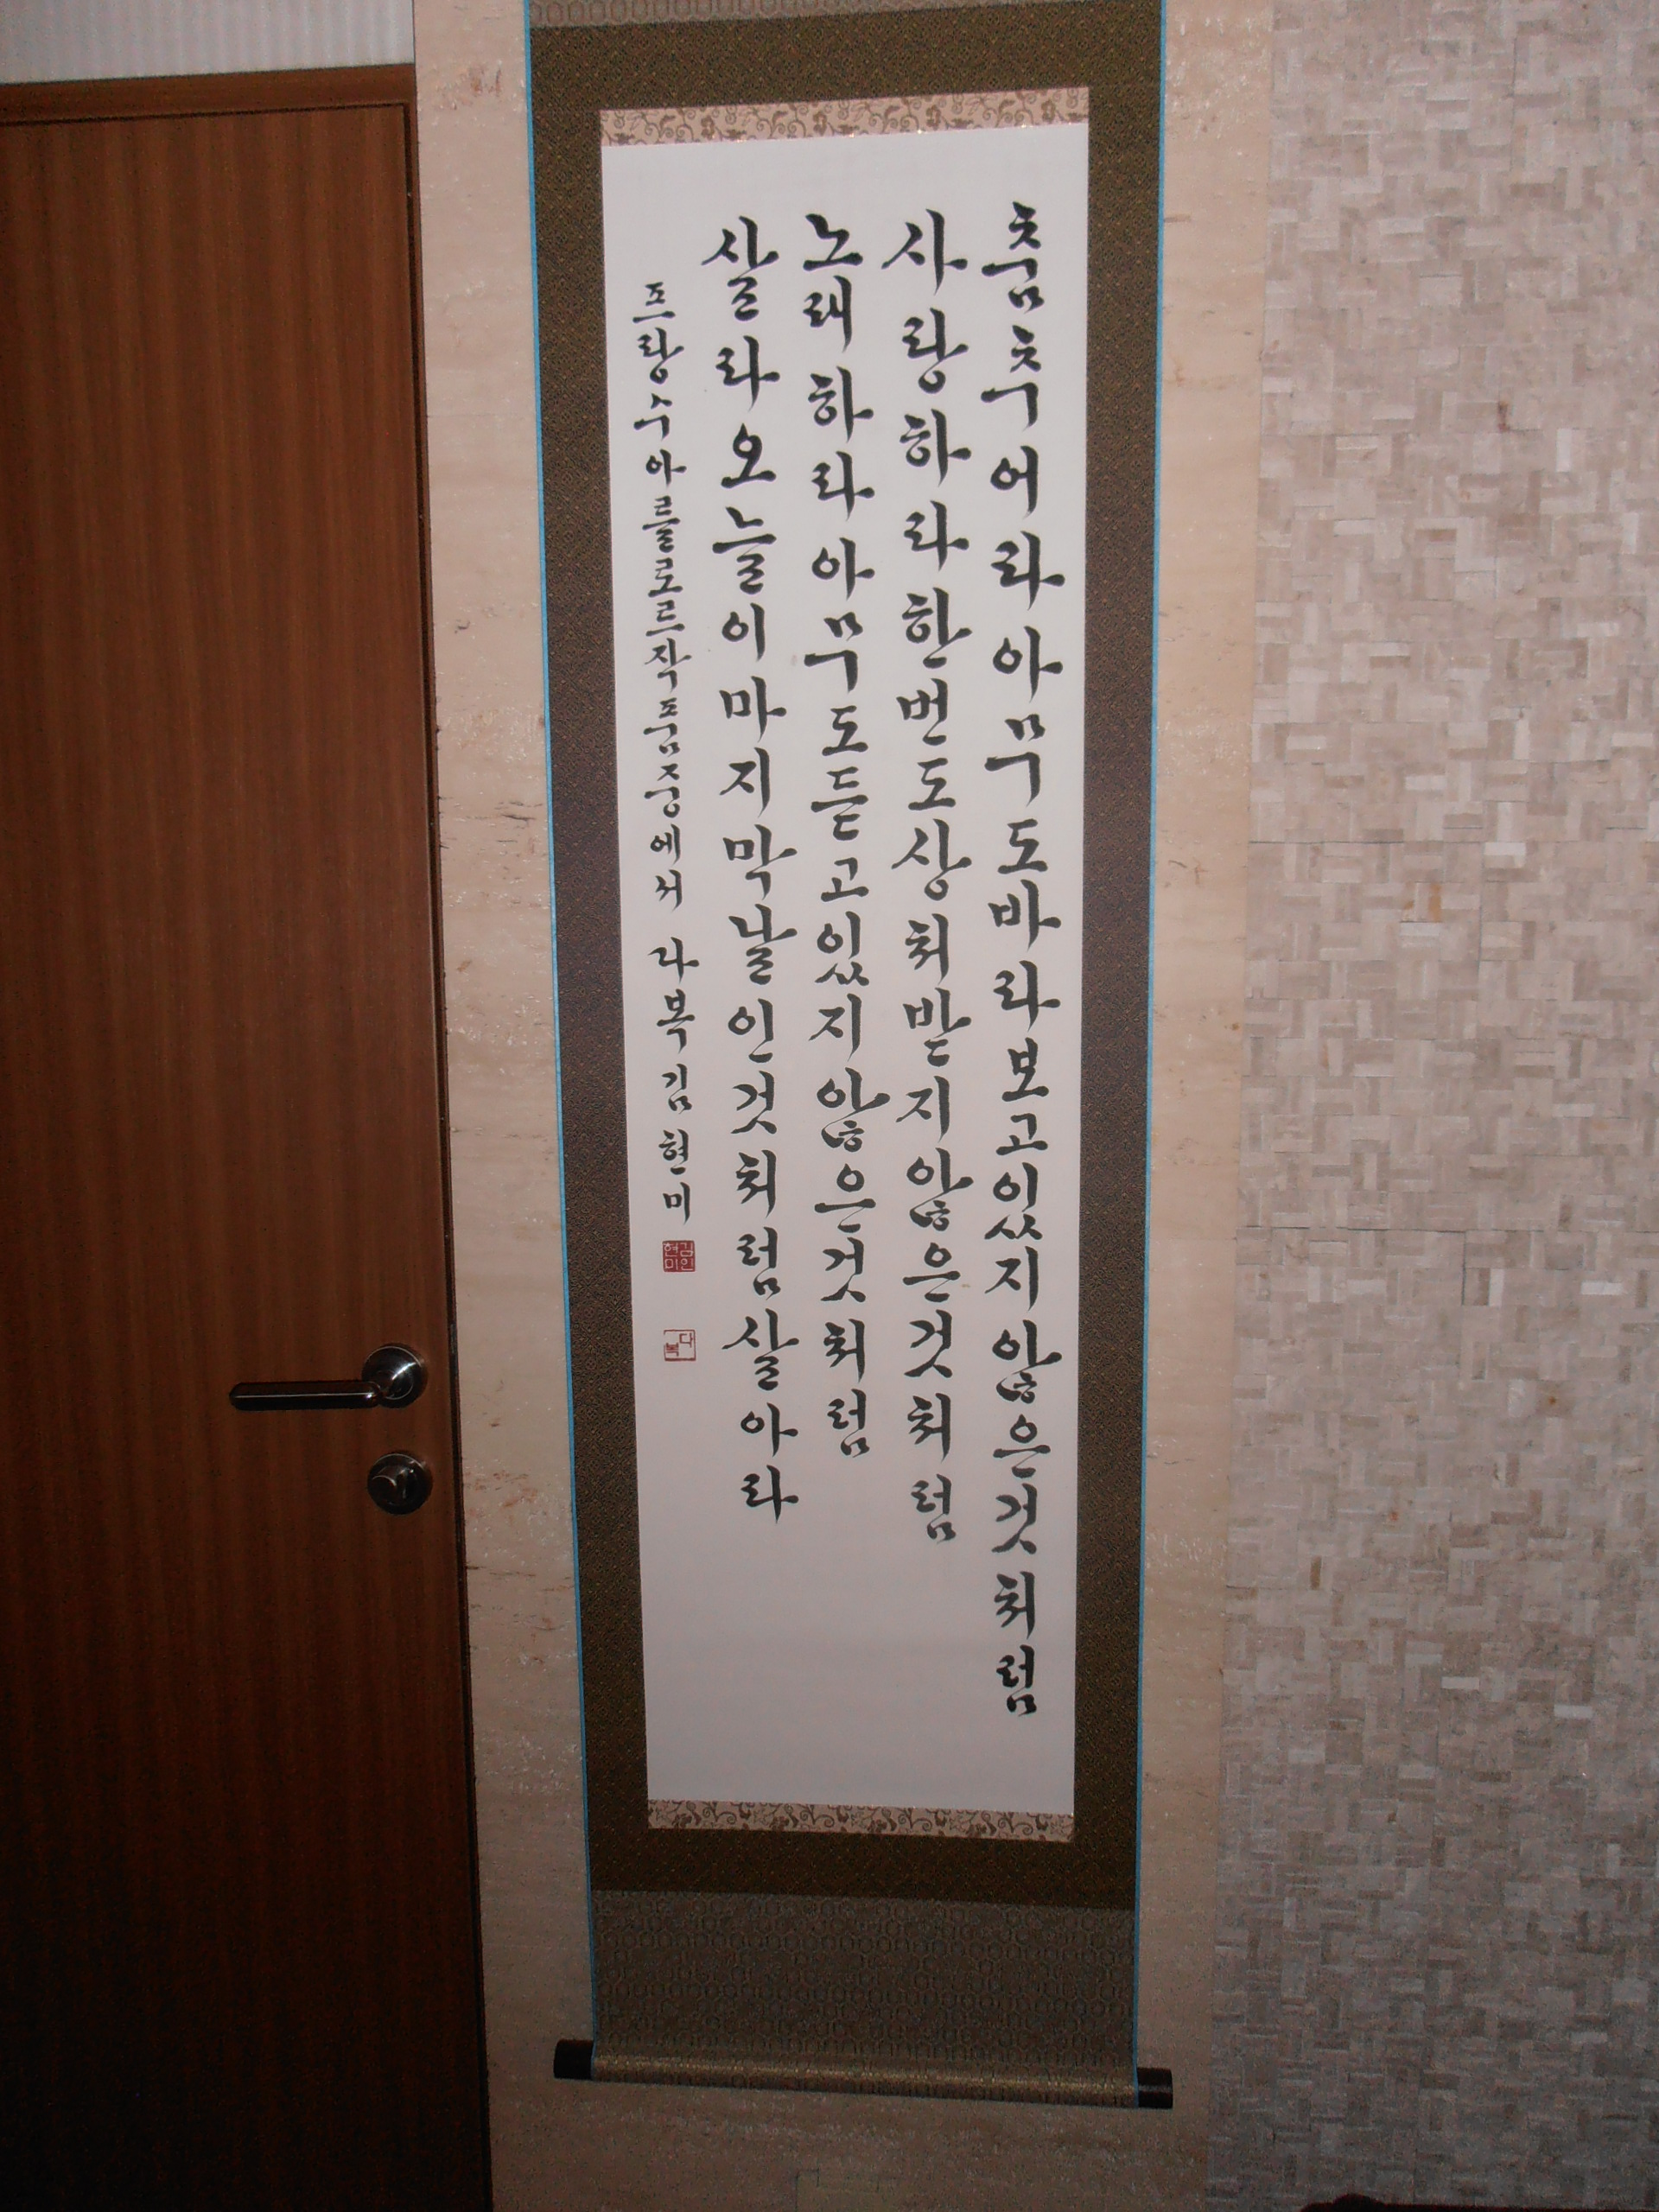 춤추어라아무도바라보고있지않은것처럼
사랑하라한번도상처받지않은것처럼
노래하라아무도듣고있지않은것처럼
살라오늘이마지막날인것처럼살아라
프랑수아를로르작품중에서 다복 김현미
김인현미
다복